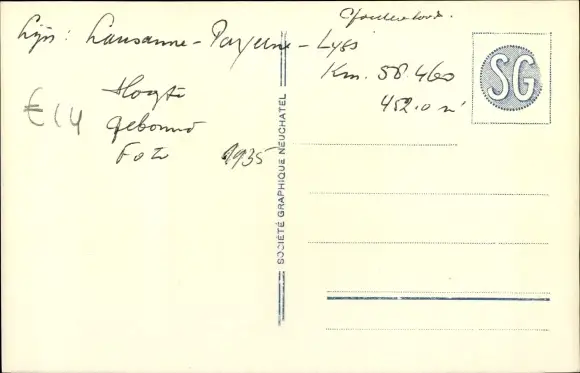 Lijn: Lausanne - Payerne - Lyss
Km. 58.460
452.0 m
Hoogte
gebouwd
Foto 1935
€ 14
SG
SOCIÉTÉ GRAPHIQUE NEUCHATEL